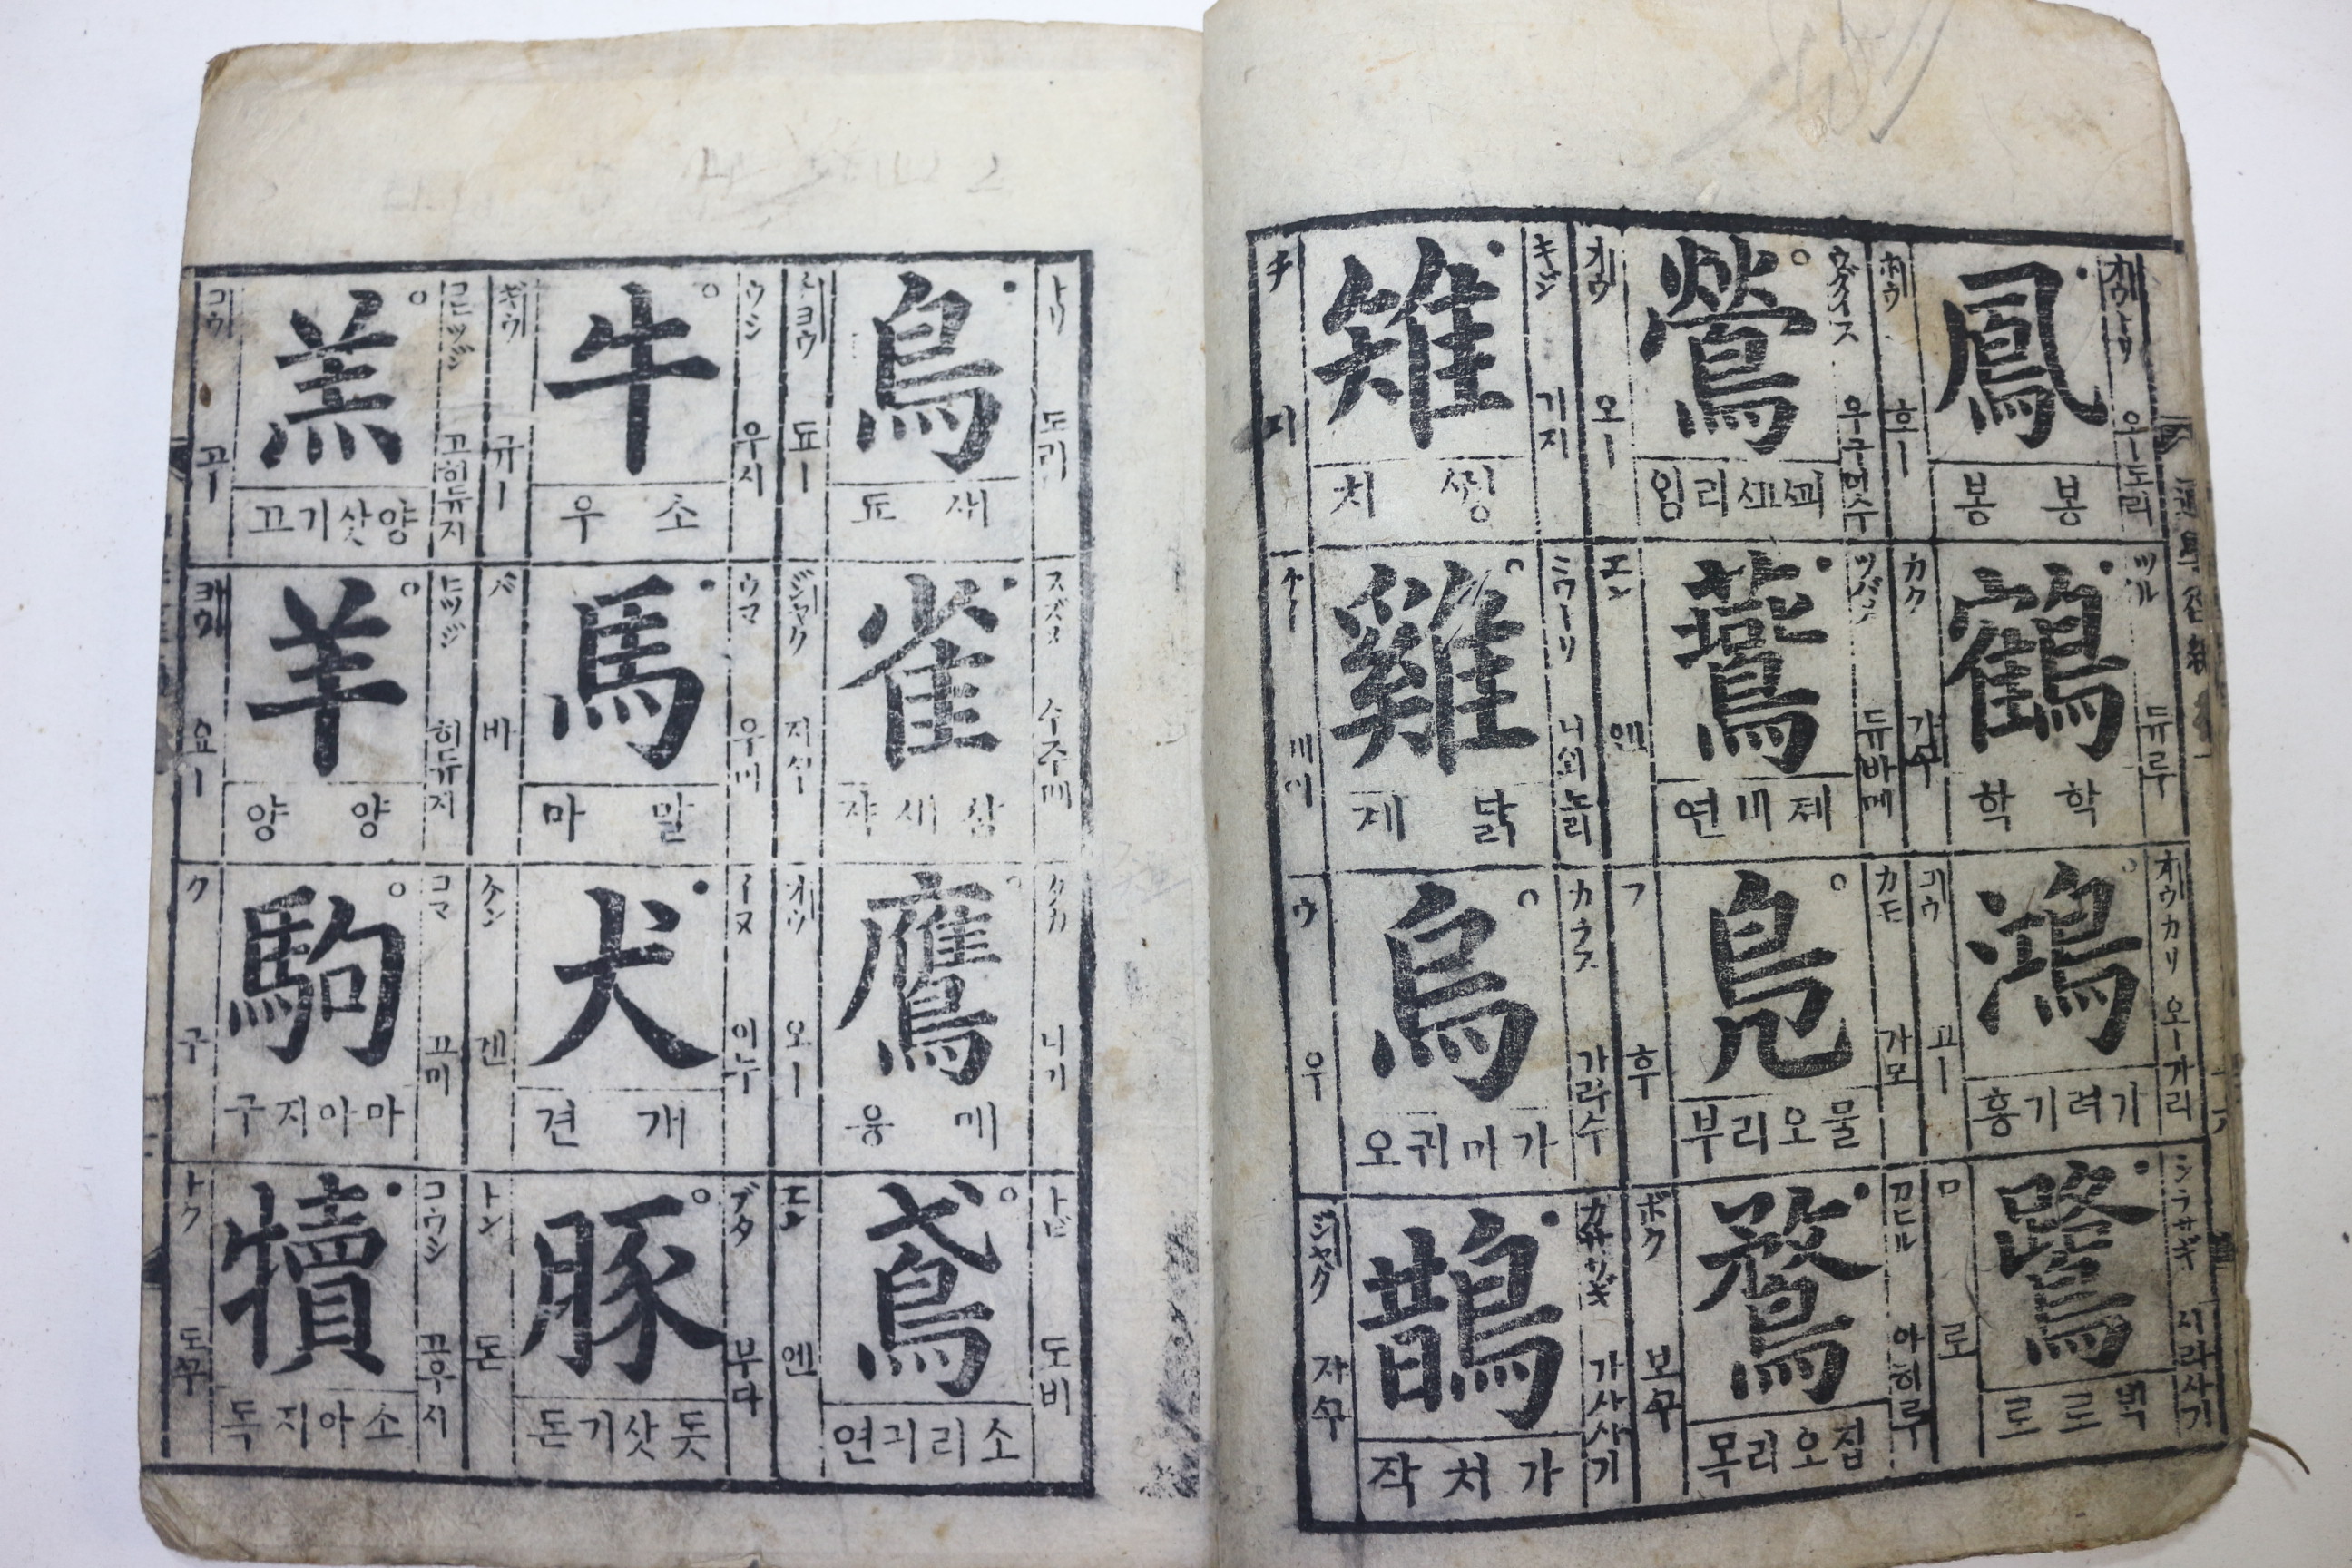 オウトリ 오ー도리
鳳
봉 봉
ホウ 호ー
ツル 듀루
鶴
학 학
カク 가꾸
オウカリ 오ー가리
鴻
가려기홍
コウ 고ー
シラサギ 시라사기
鷺
ロ 로
ウグイス
鶯
ᄭᅬᄭᅩ리잉
オウ 오ー
ツバメ 듀바메
鷰
제비연
エン 엔
カモ 가모
鳧
물오리부
フ 후
アヒル 아히루
鶩
집오리목
ボク 보꾸
キジ 기지
雉
ᄭᅯᆼ 치
チ 지
雞
닭 계
カラス 가라수
烏
가마귀오
ウ 우
カササギ 가사사기
鵲
가치작
ジャク 자꾸
トリ 도리
鳥
새 됴
됴ー
スズメ 수주메
雀
참새쟉
ジャク
タカ
鷹
매 응
オウ 오ー
トビ 도비
鳶
소리긔연
エン 엔
ウシ 우시
牛
소 우
ギウ 규ー
ウマ 우메
馬
말 마
バ 바
イヌ 이누
犬
개 견
ケン 겐
ブタ 부다
豚
돗삿기돈
トン 돈
コヒツジ 고히듀지
羔
양삿기고
コウ 고ー
ヒツジ 히듀지
羊
양 양
ヨウ 요ー
コマ 고마
駒
마아지구
ク 구
コウシ 고우시
犢
소아지독
トク 도꾸